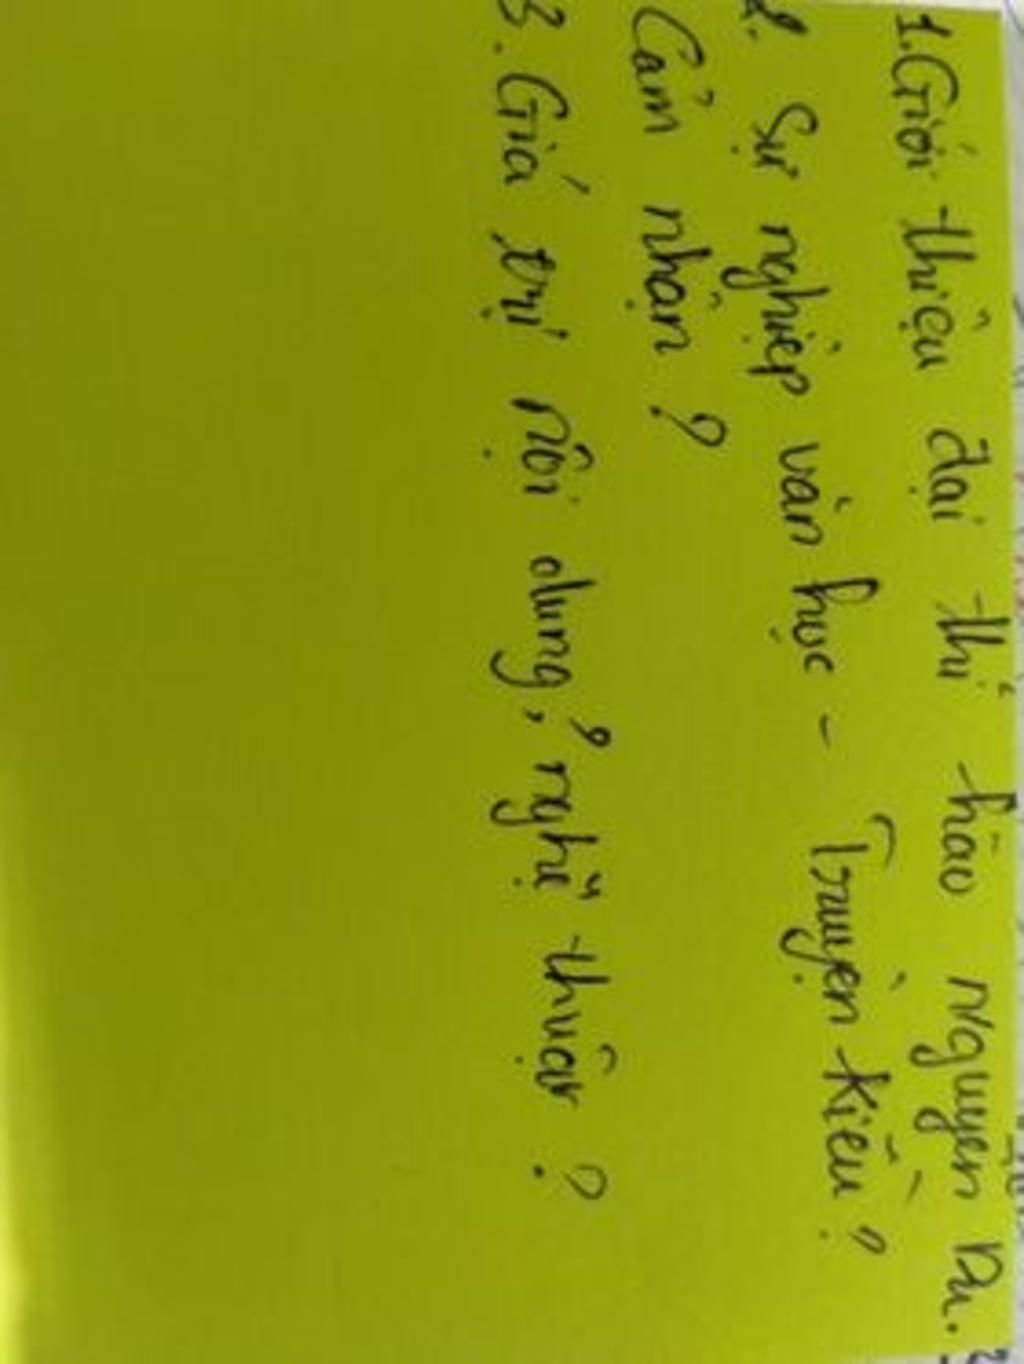 1. Giới thiệu đại thi hào Nguyễn Du.
2. Sự nghiệp văn học - Truyện Kiều?
Cảm nhận?
3. Giá trị nội dung, nghệ thuật?